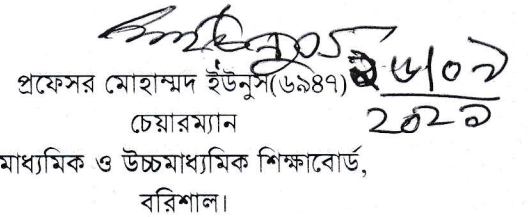 প্রফেসর মোহাম্মদ ইউনুস(৬৯৪৭)
চেয়ারম্যান
মাধ্যমিক ও উচ্চমাধ্যমিক শিক্ষাবোর্ড,
বরিশাল।